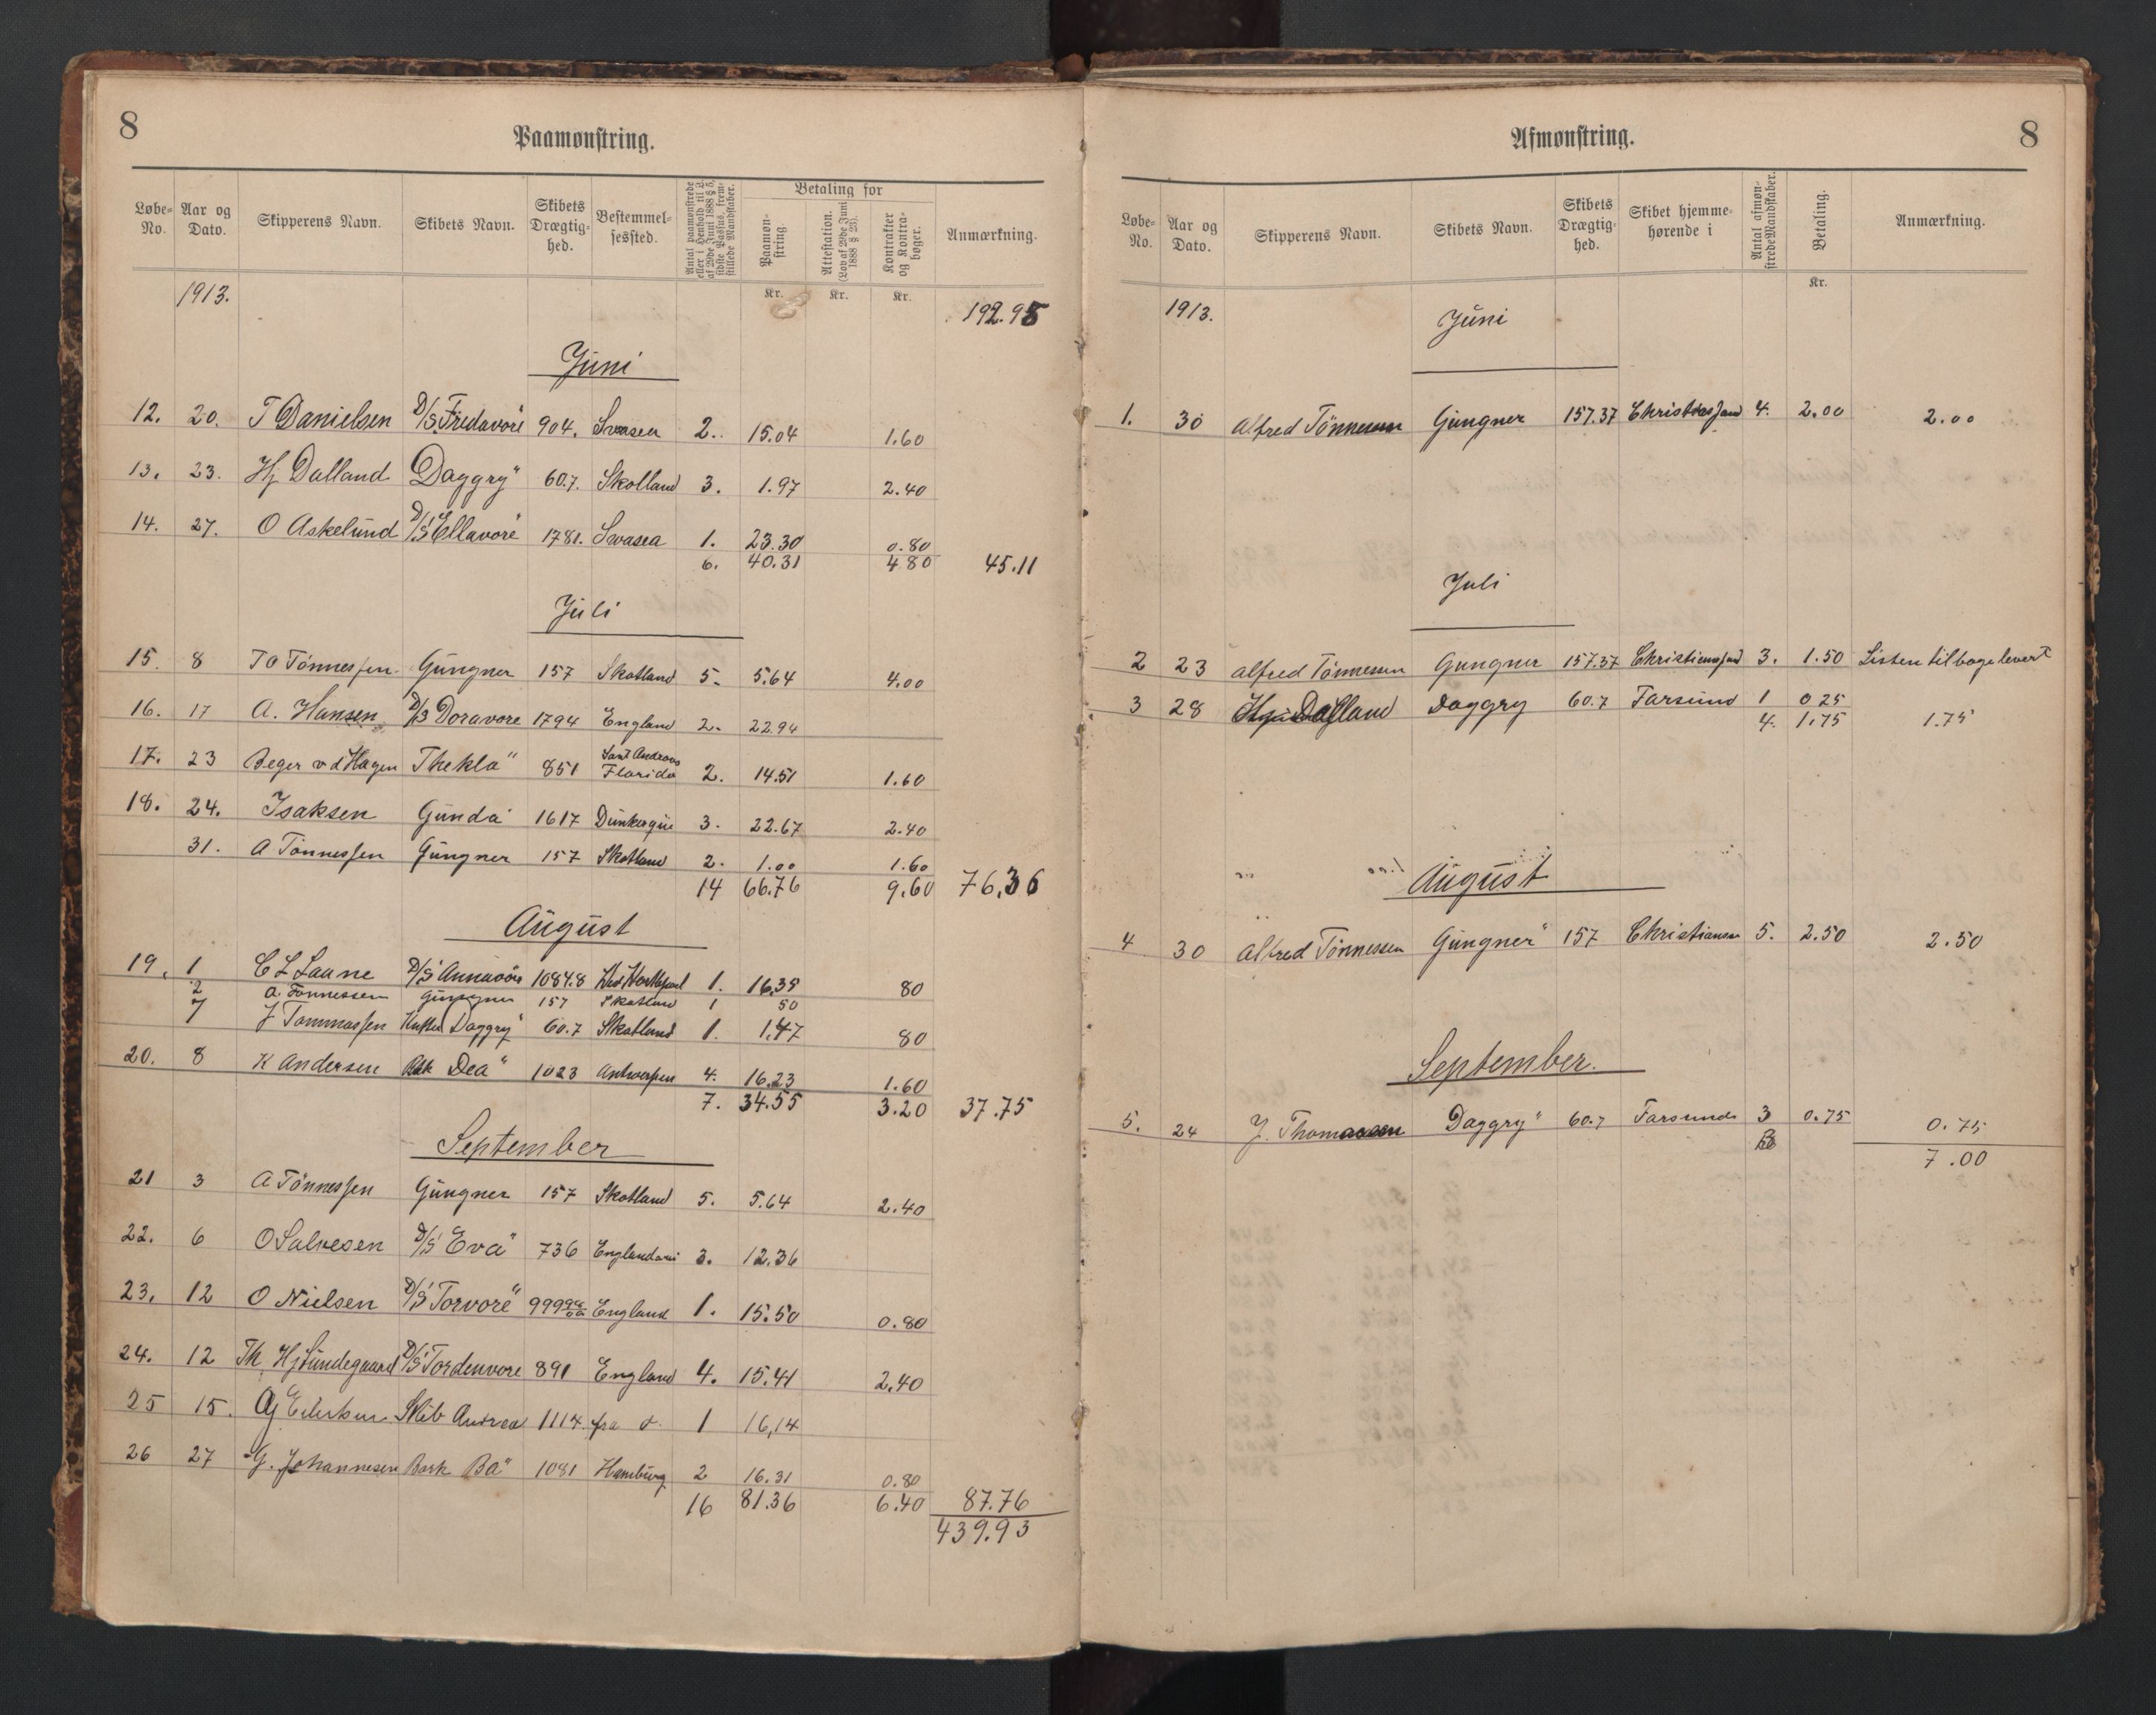 8
Paamønstring.
Løbe-No. Aar og Dato. Skipperens Navn. Skibets Navn. Skibets Drægtig-hed. Bestemmel-sessted. Antal paamønstrede eller i Henhold til L. af 29de Juni 1888 § 5, sidste Passus, frem-stillede Mandskaber. Betaling for Paamøn-string Attestation. (Lov af 29de Juni 1888 § 23). Kontrakter og Kontra-bøger. Anmærkning.
Kr. Kr. Kr.
1913. 192.95
Juni
12. 20. T Danielsen D/S Fredavore 904. Swasea 2. 15.04 1.60
13. 23. Hj Dalland Daggry" 60.7. Skotland 3. 1.97 2.40
14. 27. O Askelund D/S Ellavore" 1781. Swasea 1. 23.30 0.80
6. 40.31 4.80 45.11
Juli
15. 8 T O Tönnessen Gungner 157 Skotland 5. 5.64 4.00
16. 17 A. Hansen D/S Doravore 1794 England 2. 22.94
17. 23 Beger v d Hagen Thekla" 851 Sant Andreas Florida 2. 14.51 1.60
18. 24. Isaksen Gunda 1617 Dunkerque 3. 22.67 2.40
31. A Tönnessen Gungner 157 Skotland 2. 1.00 1.60
14 66.76 9.60 76.36
August
19. 1 C L Laane D/S Annavore 1084.8 1. 16.35 80
2 A Tönnessen Gungner 157 Skotland 1 50
7 J Tommassen Kutter Daggry" 60.7 Skotland 1. 1.47 80
20. 8 K Andersen Bk Dea" 1023 Antwerpen 4. 16.23 1.60
7. 34.55 3.20 37.75
September
21 3 A Tönnessen Gungner 157 Skotland 5. 5.64 2.40
22. 6 O Salvesen D/S Eva" 736 3. 12.36
23. 12 O Nielsen D/S Torvore" 999 England 1. 15.50 0.80
24. 12 Th. Hj Sundegaard D/S Tordenvore 891 England 4. 15.41 2.40
25 15. Skib Andrea 1114 fra d. 1 16,14
26 27 G. Johannesen Bark Ba" 1081 Hamburg 2 16.31 0.80
16 81.36 6.40 87.76
439.93
8
Afmønstring.
Løbe-No. Aar og Dato. Skipperens Navn. Skibets Navn. Skibets Drægtig-hed. Skibet hjemme-hørende i Antal afmøn-strede Mandskaber. Betaling. Anmærkning.
Kr.
1913. Juni
1. 30 Alfred Tönnessen Gungner 157.37 Christiansand 4. 2.00 2.00
Juli
2 23 Alfred Tönnessen Gungner 157.37 Christiansand 3. 1.50 Listen tilbagelevert
3 28 Dalland Daggry 60.7 Farsund 1 0 25
4. 1,75 1.75
August
4 30 Alfred Tönnessen Gungner" 157 Christiansa 5. 2.50 2.50
September.
5. 24 J. Thomassen Daggry" 60.7 Farsund 3 0.75 0.75
7.00